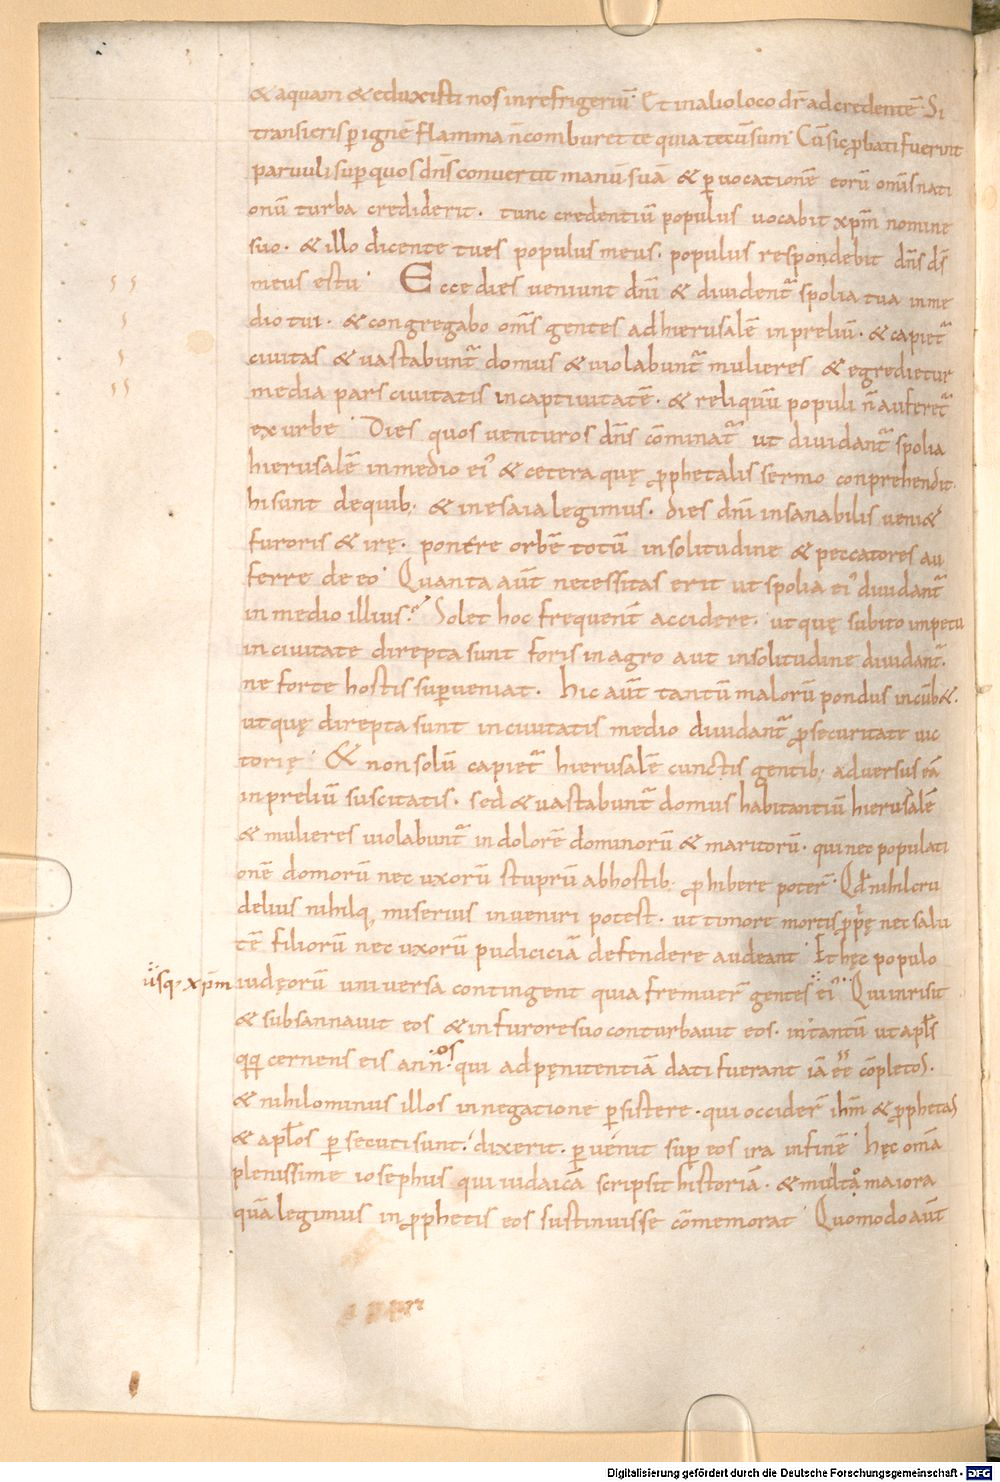 & aquam & eduxisti nos inrefrigeriū. Et in alio loco dr̄ ad credentē. Si
transieris ꝑ ignē flamma n̄ comburet te quia tecū sum. Cū sic ꝓbati fuerint
paruuli suꝑ quos dn̄s conuertit manū suā & ꝑ uocationē eorū om̄is nati
onū turba crediderit. tunc credentiū populus uocabit xp̄m nomine
suo. & illo dicente tu es populus meus. populus respondebit dn̄s ds̄
meus es tu. Ecce dies ueniunt dn̄i & diuident᷑ spolia tua in me
dio tui. & congregabo om̄s gentes ad hierusalē in preliū. & capiet᷑
ciuitas & uastabunt᷑ domus & uiolabunt᷑ mulieres & egredietur
media pars ciuitatis in captiuitatē. & reliquū populi n̄ auferet᷑
ex urbe. Dies quos uenturos dn̄s cōminat᷑ ut diuidant᷑ spolia
hierusalē in medio ei᷒ & cetera quę ꝓphetalis sermo conprehendit.
hi sunt de quib; & in esaia legimus. dies dn̄i insanabilis ueni&
furoris & irę. ponere orbē totū in solitudine & peccatores au
ferre de eo. Quanta aūt necessitas erit ut spolia ei᷒ diuidant᷑
in medio illius? Solet hoc frequent̄ accidere. ut quę subito impetu
in ciuitate direpta sunt foris in agro aut in solitudine diuidant᷑.
ne forte hostis suꝑueniat. hic aūt tantū malorū pondus incūb&.
ut quę direpta sunt in ciuitatis medio diuidant᷑ ꝓ securitate uic
torię. & non solū capiet᷑ hierusalē cunctis gentib; aduersus eā
in preliū suscitatis. sed & uastabunt᷑ domus habitantiū hierusalē
& mulieres uiolabunt᷑ in dolorē dominorū & maritorū. qui nec populati
onē domorū nec uxorū stuprū ab hostib; ꝓhibere poter̄. Qd̄ nihil cru
delius nihilq; miserius inueniri potest. ut timore mortis ꝓprię nec salu
tē filiorū nec uxorū pudiciciā defendere audeant. Et hęc populo
iudęorū uniuersa contingent quia fremuer̄ gentes ei᷒. Qui inrisit
usq; xp̄m
& subsannauit eos & in furore suo conturbauit eos. in tantū ut apl̄s
qq; cernens eis annos qui ad pęnitentiā dati fuerant iā ēē cōpletos.
& nihilominus illos in negatione ꝑsistere. qui occider̄ ih̄m & ꝓphetas
& apl̄os ꝑsecuti sunt. dixerit. ꝑuenit suꝑ eos ira in finē. hęc om̄a
plenissime iosephus qui iudaicā scripsit historiā. & multo maiora
quā legimus in ꝓphetis eos sustinuisse cōmemorat. Quomodo aūt
Digitalisierung gefördert durch die Deutsche Forschungsgemeinschaft - DFG